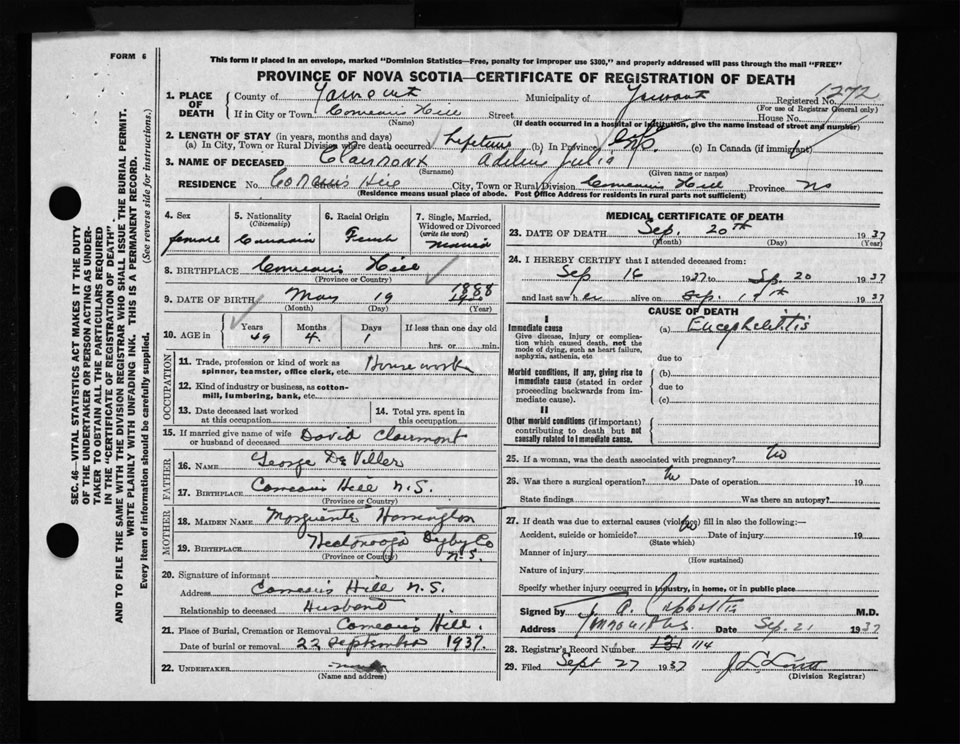 FORM 6
This form if placed in an envelope, marked "Dominion Statistics—Free, penalty for improper use $300," and properly addressed will pass through the mail "FREE"
PROVINCE OF NOVA SCOTIA—CERTIFICATE OF REGISTRATION OF DEATH
SEC. 46—VITAL STATISTICS ACT MAKES IT THE DUTY
OF THE UNDERTAKER OR PERSON ACTING AS UNDER-
TAKER TO OBTAIN ALL THE PARTICULARS REQUIRED
IN THE "CERTIFICATE OF REGISTRATION OF DEATH"
AND TO FILE THE SAME WITH THE DIVISION REGISTRAR WHO SHALL ISSUE THE BURIAL PERMIT.
WRITE PLAINLY WITH UNFADING INK. THIS IS A PERMANENT RECORD.
Every item of information should be carefully supplied. (See reverse side for instructions.)
1. PLACE OF DEATH County of Yarmouth Municipality of Yarmouth Registered No. 1272
(For use of Registrar General only)
If in City or Town Comeau's Hill Street House No.
(Name) (If death occurred in a hospital or institution, give the name instead of street and number)
2. LENGTH OF STAY (in years, months and days)
(a) In City, Town or Rural Division where death occurred Lifetime (b) In Province (c) In Canada (if immigrant)
3. NAME OF DECEASED Clairmont Julia
(Surname) (Given name or names)
RESIDENCE No. Comeau's Hill Street City, Town or Rural Division Comeau's Hill Province NS
(Residence means usual place of abode. Post Office Address for residents in rural parts not sufficient)
4. Sex female
5. Nationality (Citizenship) Canadian
6. Racial Origin French
7. Single, Married, Widowed or Divorced (write the word) Married
8. BIRTHPLACE Comeau's Hill
(Province or Country)
9. DATE OF BIRTH May 19 1888
(Month) (Day) (Year)
10. AGE in Years 49 Months 4 Days 1 If less than one day old
hrs. or min.
OCCUPATION
11. Trade, profession or kind of work as spinner, teamster, office clerk, etc. Housework
12. Kind of industry or business, as cotton-mill, lumbering, bank, etc.
13. Date deceased last worked at this occupation
14. Total yrs. spent in this occupation
15. If married give name of wife or husband of deceased David Clairmont
FATHER
16. NAME George De Viller
17. BIRTHPLACE Comeau's Hill N.S.
MOTHER
18. MAIDEN NAME Harrington
19. BIRTHPLACE Digby Co N.S.
(Province or Country)
20. Signature of informant
Address Comeau's Hill N.S.
Relationship to deceased Husband
21. Place of Burial, Cremation or Removal Comeau's Hill.
Date of burial or removal 22 September 1937.
22. UNDERTAKER
(Name and address)
MEDICAL CERTIFICATE OF DEATH
23. DATE OF DEATH Sep. 20th 1937
(Month) (Day) (Year)
24. I HEREBY CERTIFY that I attended deceased from:
Sep 16 1937 to Sep. 20 1937
and last saw her alive on Sep. 1937
CAUSE OF DEATH
I
Immediate cause (a) Encephelitis
Give disease, injury or complica-
tion which caused death, not the
mode of dying, such as heart failure,
asphyxia, asthenia, etc due to
Morbid conditions, if any, giving rise to (b)
immediate cause (stated in order due to
proceeding backwards from im-
mediate cause). (c)
II
Other morbid conditions (if important)
contributing to death but not
causally related to immediate cause.
25. If a woman, was the death associated with pregnancy? No
26. Was there a surgical operation? No Date of operation 19
State findings Was there an autopsy?
27. If death was due to external causes (violence) fill in also the following:—
Accident, suicide or homicide? Date of injury 19
(State which)
Manner of injury
(How sustained)
Nature of injury
Specify whether injury occurred in industry, in home, or in public place
Signed by M.D.
Address Date Sep. 21 1937
28. Registrar's Record Number 131 114
29. Filed Sept 27 1937
(Division Registrar)